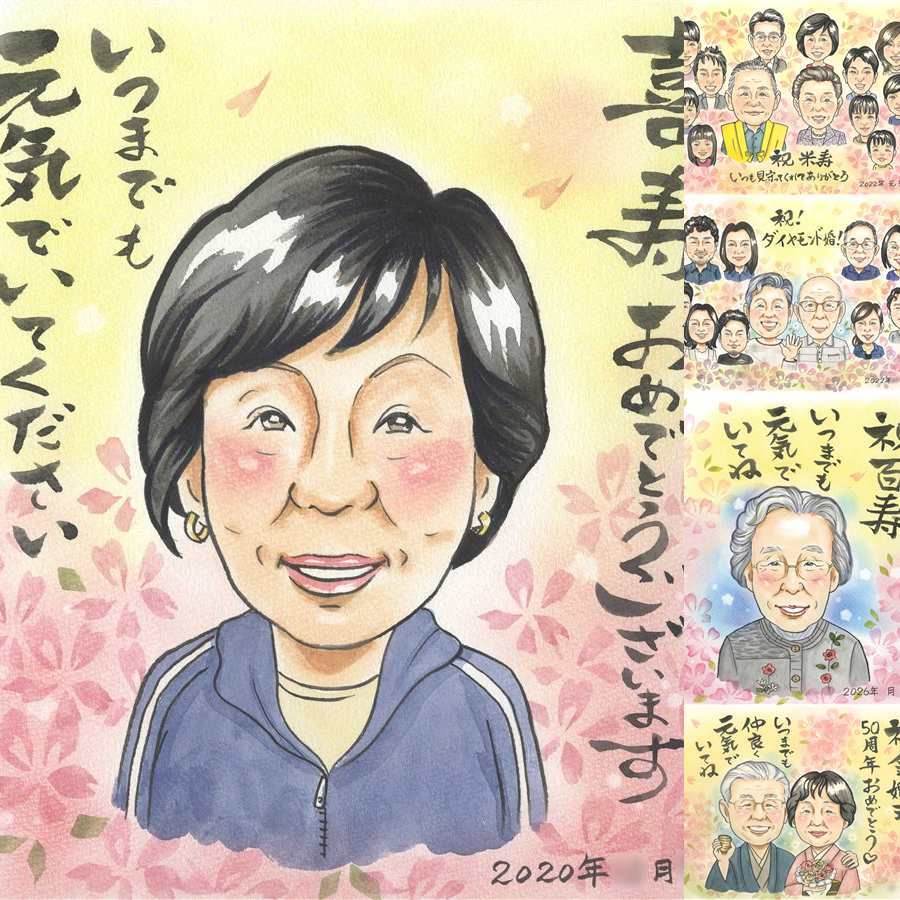 喜寿 おめでとうございます
いつまでも
元気でいてください
2020年 月
祝 米寿
いつも見守ってくれてありがとう
2022年
祝!
ダイヤモンド婚!
2022年
祝 百寿
いつまでも
元気で
いてね
2026年 月
50周年おめでとう♡
いつまでも
仲良く
元気で
いてね